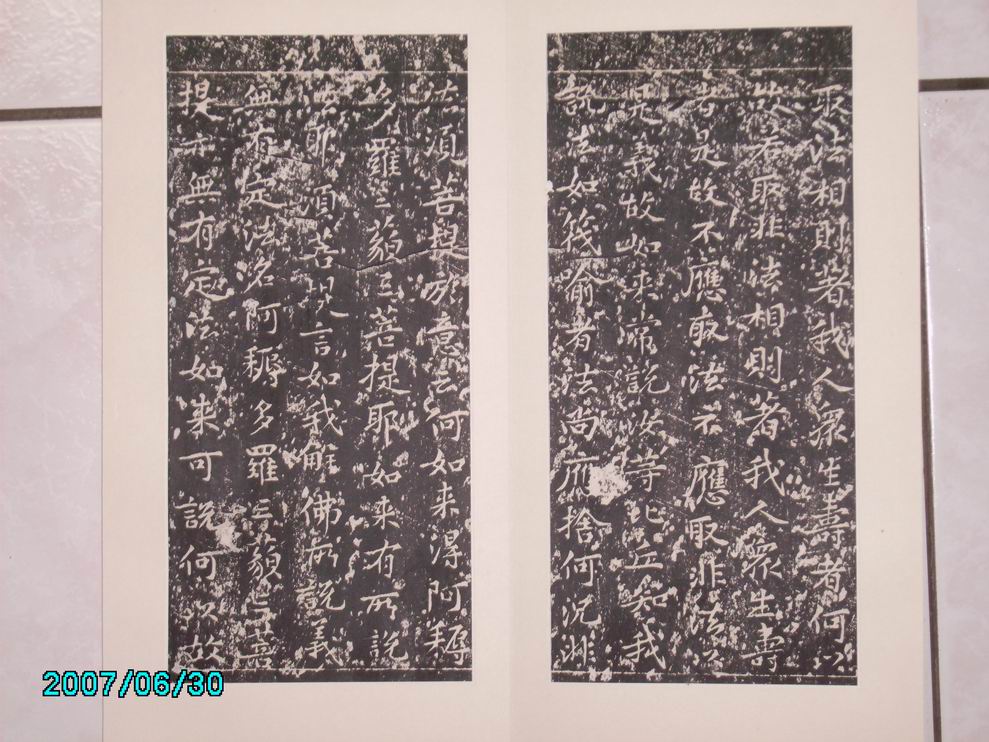 取法相則著我人衆生壽者何以
故若取非法相則著我人衆生壽
者是故不應取法不應取非法以
是義故如来常說汝等比丘知我
說法如筏喻者法尚應捨何況非
法須菩提於意云何如来得阿耨
多羅三藐三菩提耶如来有所說
法耶須菩提言如我解佛所說義
無有定法名阿耨多羅三藐三菩
提亦無有定法如来可說何以故
2007/06/30